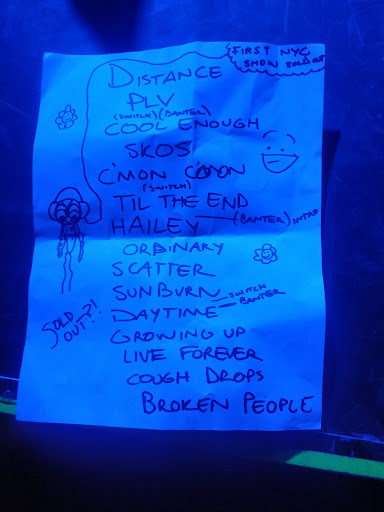 FIRST NYC
SHOW SOLD OUT
DISTANCE
PLV
(SWITCH) (BANTER)
COOL ENOUGH
SKOS
C'MON C'MON
(SWITCH)
TIL THE END
HAILEY — (BANTER) INTRO
ORDINARY
SCATTER
SUNBURN — SWITCH
DAYTIME — BANTER
SOLD OUT?!
GROWING UP
LIVE FOREVER
COUGH DROPS
BROKEN PEOPLE